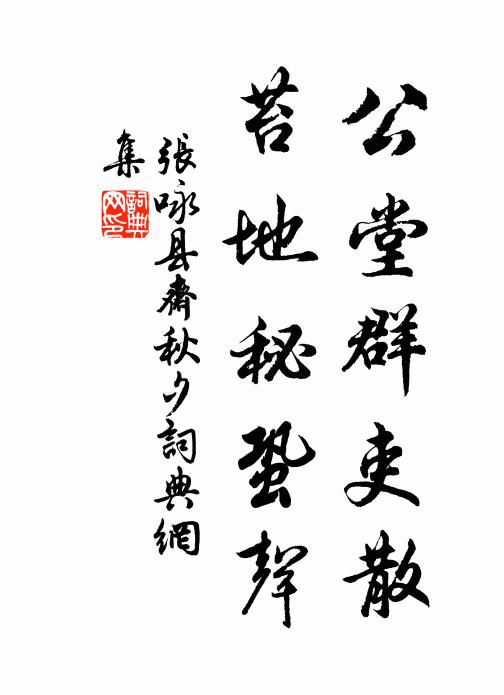 公堂群吏散
苔地秘蛩聲
張咏县齋秋夕詞典網
集
詞典网印